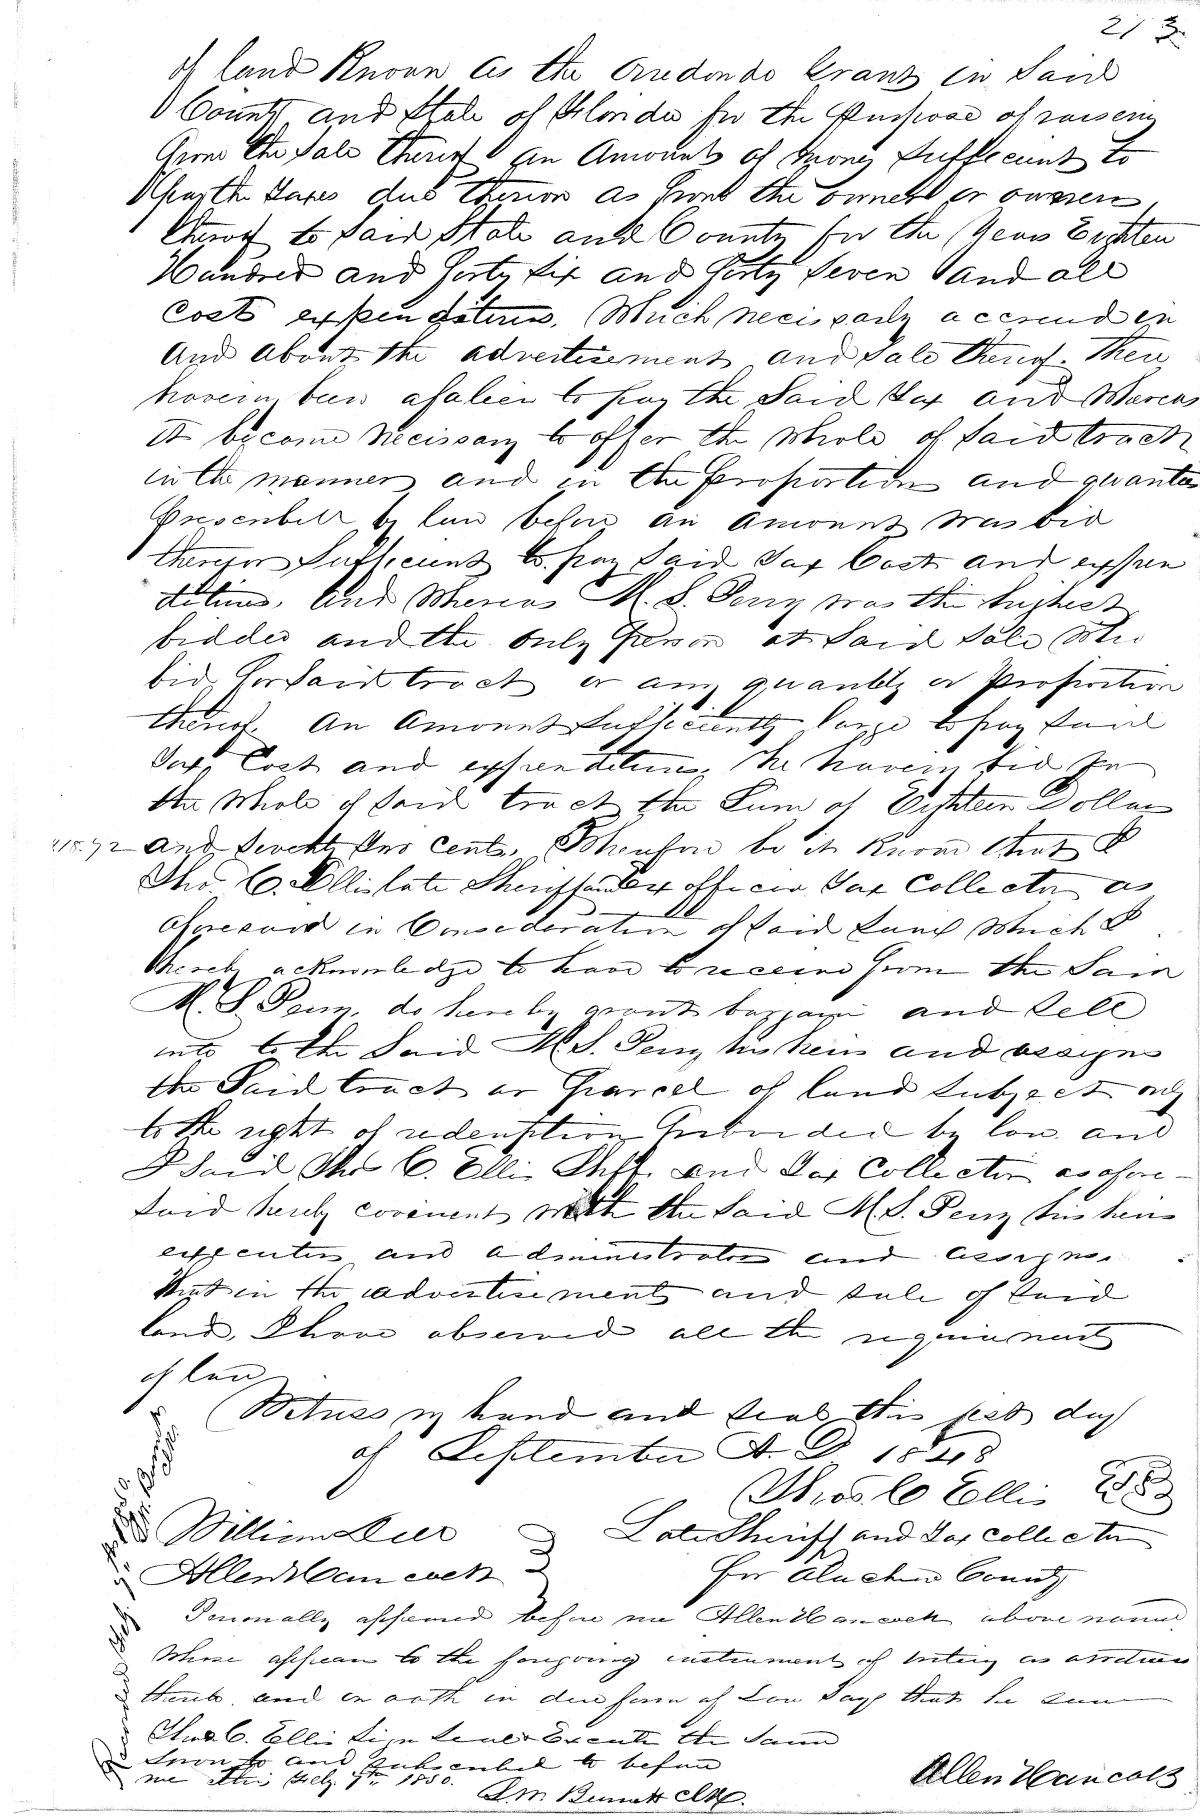 213
of land Known as the Arredondo Grant in Said
County and State of Florida for the Purpose of raising
from the Sale thereof an Amount of money Sufficient to
pay the Taxes due thereon as from the owner or owners
thereof to Said State and County for the Years Eighteen
Hundred and forty Six and forty Seven and all
Costs expenditures, Which necissarly accrued in
And About the advertisement and Sale thereof. There
having been a failier to pay the Said Tax and Whereas
it become necissary to offer the whole of Said tract
in the manner and in the proportion and quantity
Prescribed by law before an amount was bid
therefor Sufficient to pay Said Tax Cost and expen
ditures, And Whereas M. S. Perry was the highest
bidder and the only Person at Said Sale Who
bid for Said tract or any quantity or Proportion
thereof, An Amount Sufficiently large to pay Said
Tax, Cost and expenditures, he having bid for
the whole of Said tract the Sum of Eighteen Dollars
$18.72 and Seventy two cents, Therefore be it Known that I
Tho. C. Ellis late Sheriff and Ex officio Tax Collector as
aforesaid in Consideration of Said Sum Which I
hereby acknowledge to have to receive from the Said
M. S. Perry, do hereby grant bargain and Sell
unto to the Said M. S. Perry his heirs and assigns
the Said tract or Parcel of land Subject only
to the right of redemption Provided by law and
I Said Tho C. Ellis Shff. and Tax Collector as afore-
Said hereby covinent with the Said M. S. Perry his heirs
executors and administrators and assigns.
that in the advertisements and sale of Said
land, I have observed all the requirements
of law
Witness my hand and Seal this first day
of September A. D. 1848
Thos. C Ellis
William
Late Sheriff and Tax collector
Allen Hancock
for Alachua County
Personally appeared before me Allen Hancock above named
Whose appears to the foregoing instrument of writing as a witness
thereto, and on oath in due form of Law Says that he saw
Thos. C. Ellis Sign Seal & Execute the Same
Sworn to and Subscribed to before
me this Feby 9th 1850.
Allen Hancock
S. M. Bennett Clk.
Recorded Feby. 9th 1850.
Bennett
Clk.